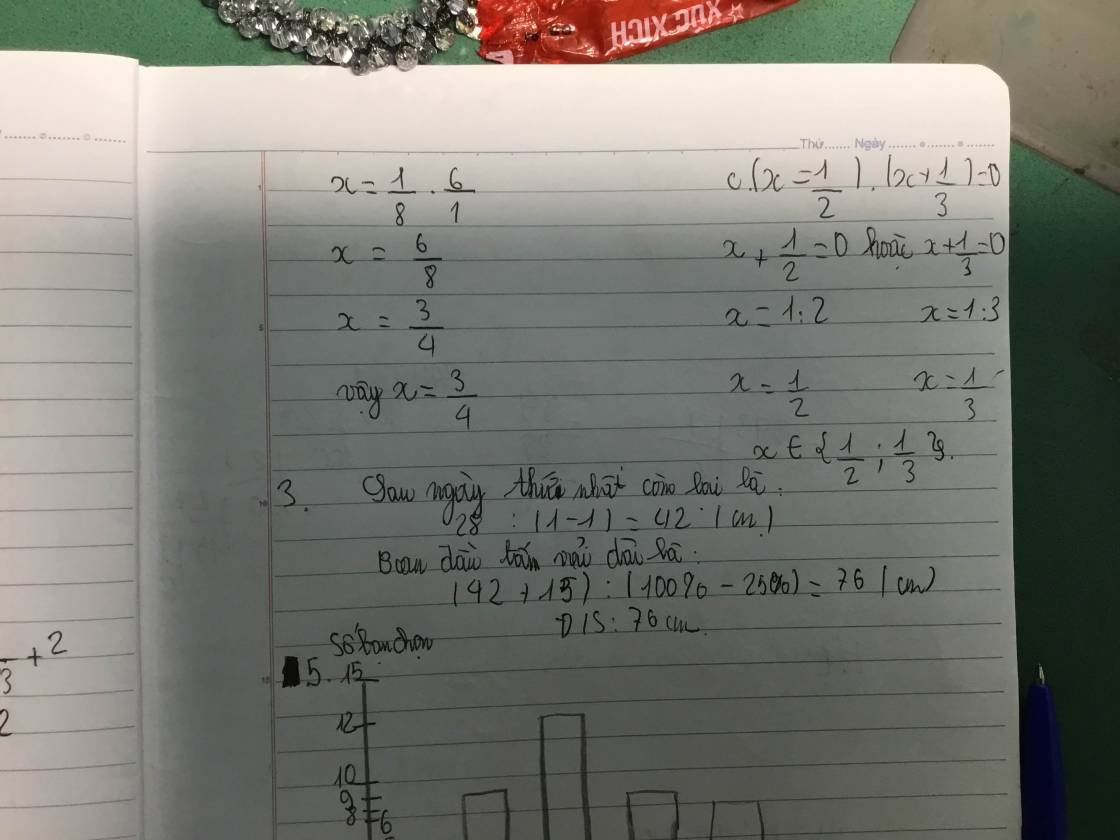 XÚC XÍCH
Thứ...... Ngày
x = 1/8 . 6/1
x = 6/8
x = 3/4
vậy x = 3/4
c. (x = 1/2) . (x + 1/3) = 0
x + 1/2 = 0 hoặc x + 1/3 = 0
x = 1 : 2 x = 1 : 3
x = 1/2 x = 1/3
x ∈ { 1/2 ; 1/3 }.
3. Sau ngày thứ nhất còn lại là :
28 : (1 - 1) = 42 (cm)
Ban đầu tấm vải dài là :
(42 + 15) : (100% - 25%) = 76 (cm)
Đ/S : 76 cm.
Số bạn chọn
5. 15
12
10
9
8
6
3 + 2
2